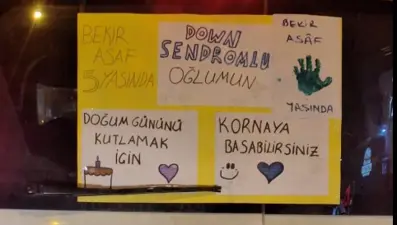 BEKİR
ASAF
5 YAŞINDA
DOWN
SENDROMLU
OĞLUMUN
BEKİR
ASÂF
YAŞINDA
DOĞUM GÜNÜNÜ
KUTLAMAK
İÇİN
KORNAYA
BASABİLİRSİNİZ